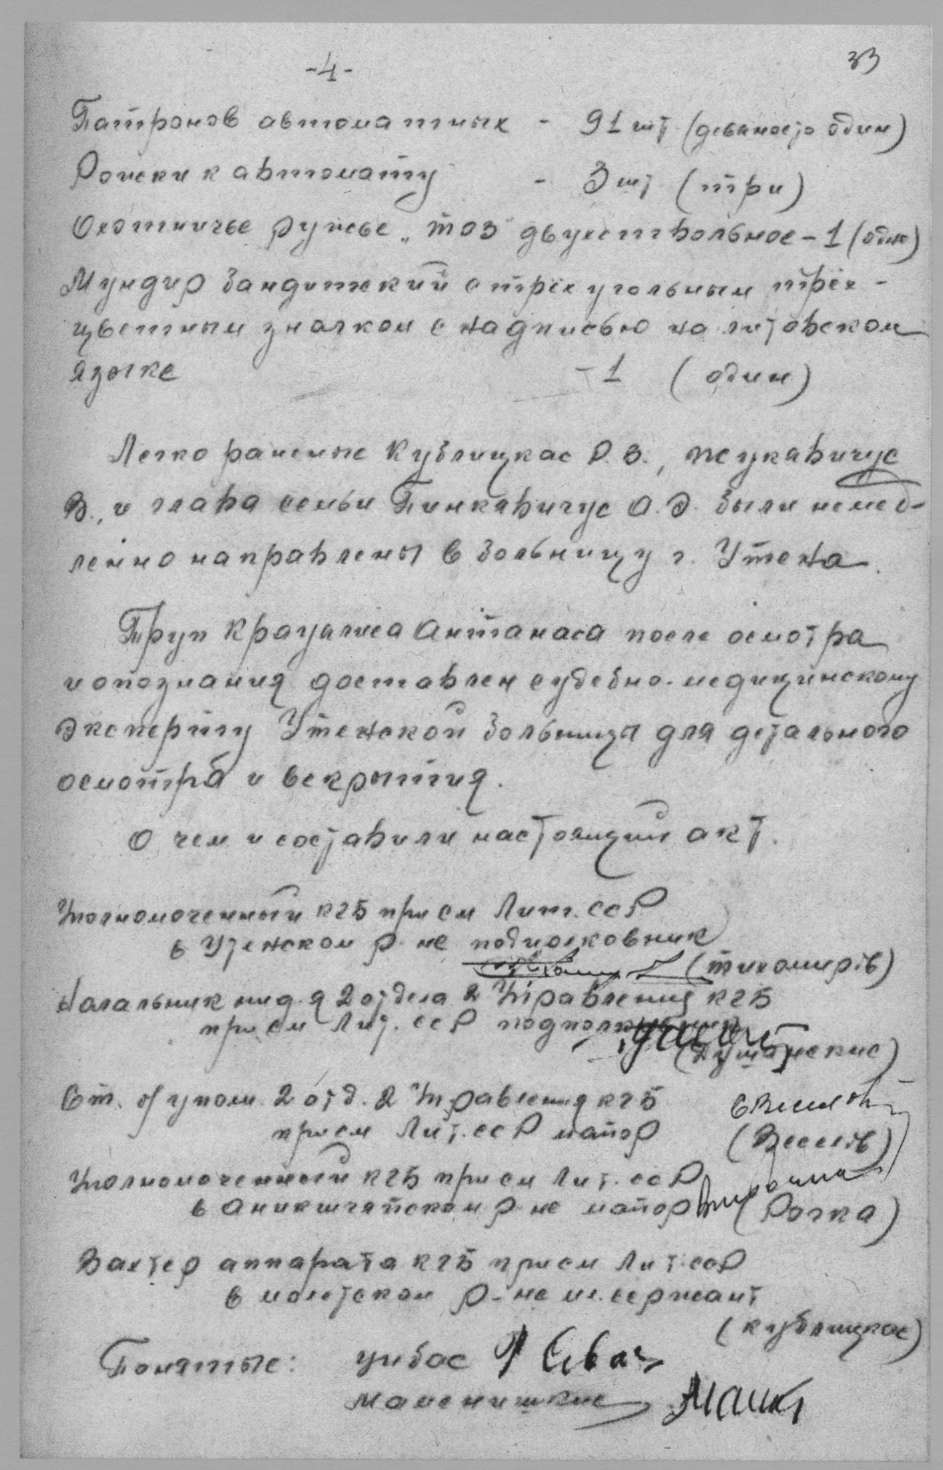 -4-
33
Патронов автоматных - 91 шт (девяносто один)
Рожки к автомату - 3 шт (три)
Охотничье ружье „ТОЗ" двухствольное - 1 (одно)
Мундир бандитский с трёхугольным трёх-
цветным значком с надписью на литовском
языке - 1 (один)
Легко раненые Кублицкас Р. З., Жукавичус
В., и глава семьи Пинкявичус А. Э. были немед-
ленно направлены в больницу г. Утена.
Труп Крауялиса Антанаса после осмотра
и опознания доставлен судебно-медицинскому
эксперту Утенской больницы для детального
осмотра и вскрытия.
О чем и составили настоящий акт.
Уполномоченный КГБ при СМ Лит. ССР
в Утенском р-не подполковник
(Тихомиров)
Начальник 2 отдела 2 Управления КГБ
при СМ Лит. ССР подполковник
Ст. о/уполн. 2 отд. 2 Управления КГБ
при СМ Лит. ССР майор (Веселов)
Уполномоченный КГБ при СМ Лит. ССР
в Аникщяйском р-не майор (Рочка)
Вахтер аппарата КГБ при СМ Лит. ССР
в Молетском р-не мл. сержант
(Кублицкас)
Понятые: Цибас